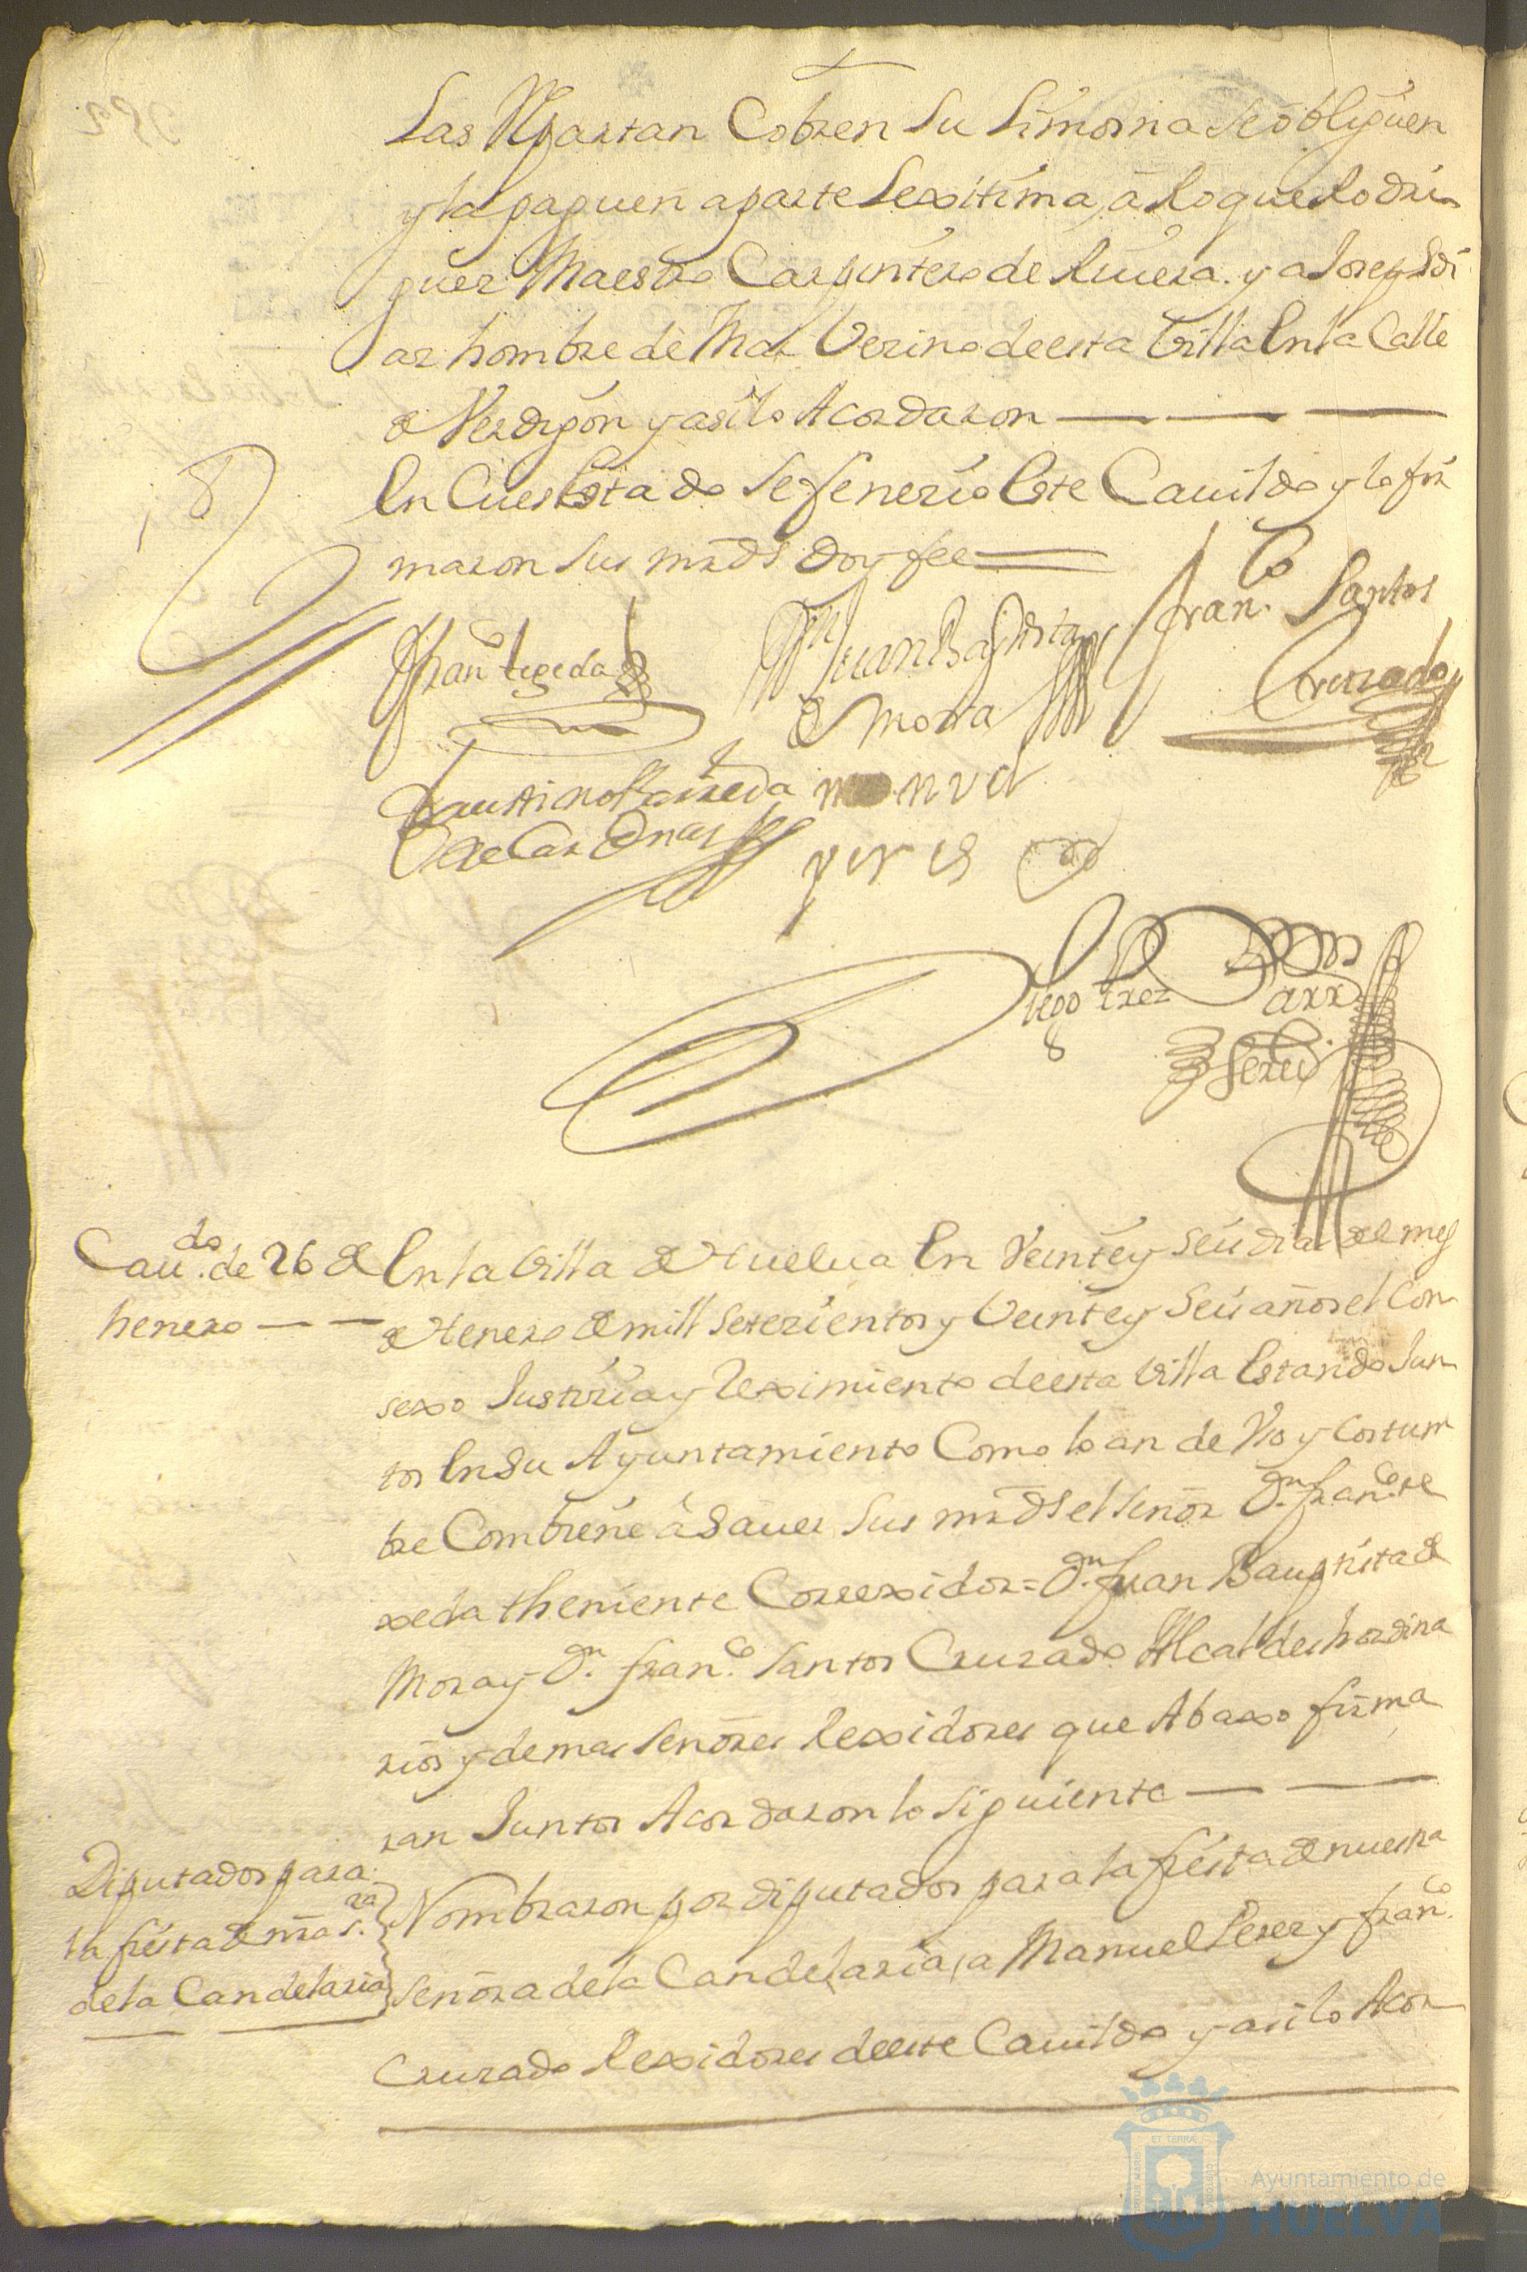 Las Repartan Cobren su limosna se obliguen
y la paguen a parte lexitima, â Roque Rodri
guez Maestro Carpintero de Riuera. y a Josep Di
az hombre de Mar Vezino de esta Villa En la Calle
de Verdigon y asi lo Acordaron
En Cuio Estado se feneziò Este Cauildo y lo fir
maron sus mrds doy fee
Franco tegeda
Dn Juan Baptista
de Mora
Franco Santos
Cruzado
Faustino Castañeda
de Cardenas
manuel
peres
Diego Perez
Cau.do de 26 de
henero
En la Villa de Huelua En Veinte y seis dias del mes
de Henero de mill setezientos y Veinte y seis años el Con
sexo Justizia y Reximiento de esta Villa Estando Jun
tos En su Ayuntamiento Como lo an de Vso y costum
bre Combiene à Sauer sus mrds el señor Dn. Franco. te
xeda theniente Correxidor = Dn. Juan Bauptista de
Mora y Dn. Franco. Santos Cruzado Alcaldes hordina
rios y demas señores Rexidores que Abaxo firma
ran Juntos Acordaron lo siguiente
Diputados para
la fiesta de nra sra.
de la Candelaria
Nombraron por diputados para la fiesta de nuestra
señora de la Candelaria, a Manuel Perez y Franco.
Cruzado Rexidores de este Cauildo y asi lo Acor
ET TERRAE
Ayuntamiento de
HUELVA